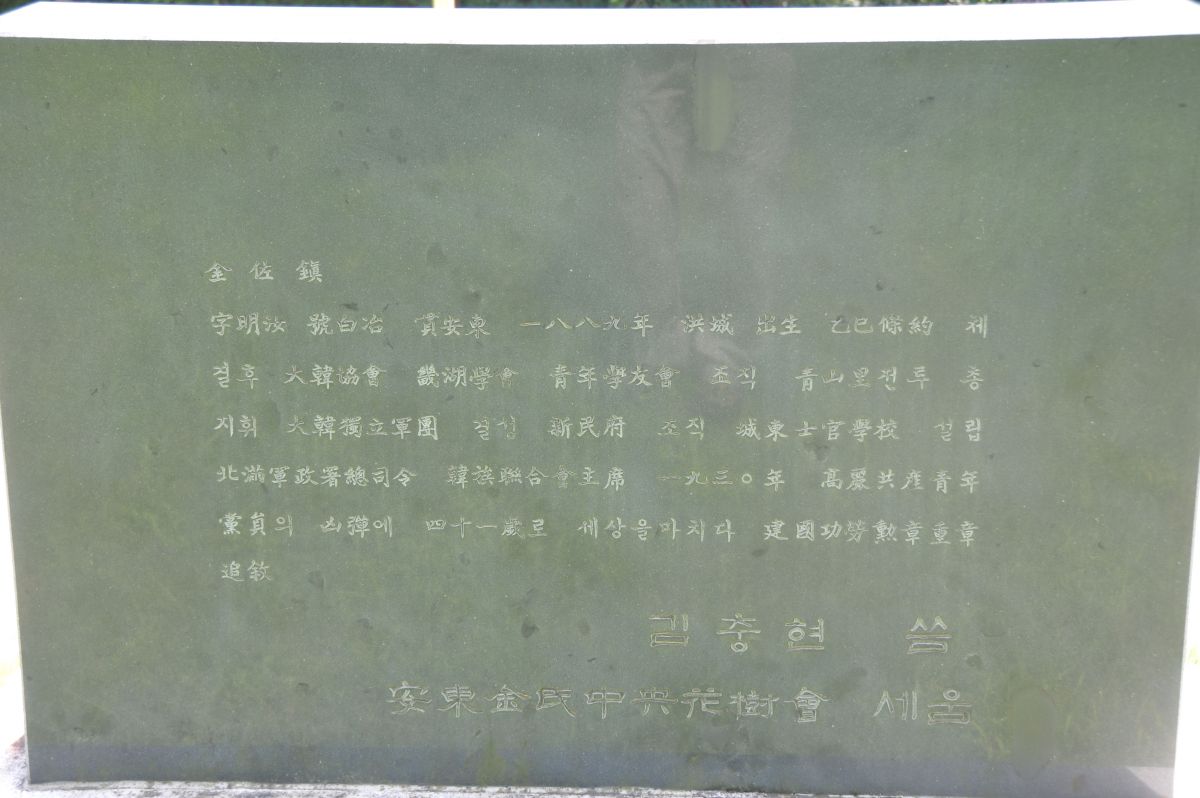 金佐鎭
字明汝 號白冶 貫安東 一八八九年 洪城 出生 乙巳條約 체
결후 大韓協會 畿湖學會 靑年學友會 조직 靑山里전투 총
지휘 大韓獨立軍團 결성 新民府 조직 城東士官學校 설립
北滿軍政署總司令 韓族聯合會主席 一九三○年 高麗共産靑年
黨員의 凶彈에 四十一歲로 세상을마치다 建國功勞勳章重章
追敍
김충현 씀
安東金氏中央花樹會 세움